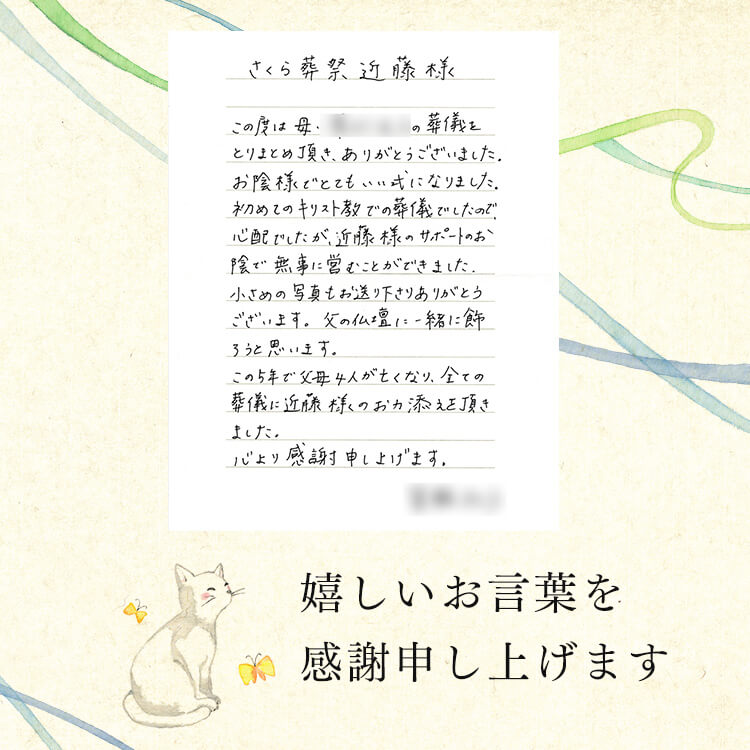 さくら葬祭 近藤様
この度は母・の葬儀を
とりまとめ頂き、ありがとうございました。
お陰様でとてもいい式になりました。
初めてのキリスト教での葬儀でしたので、
心配でしたが、近藤様のサポートのお
陰で無事に営むことができました。
小さめの写真もお送り下さりありがとう
ございます。父の仏壇に一緒に飾
ろうと思います。
この5年で父母4人が亡くなり、全ての
葬儀に近藤様のお力添えを頂き
ました。
心より感謝申し上げます。
嬉しいお言葉を
感謝申し上げます